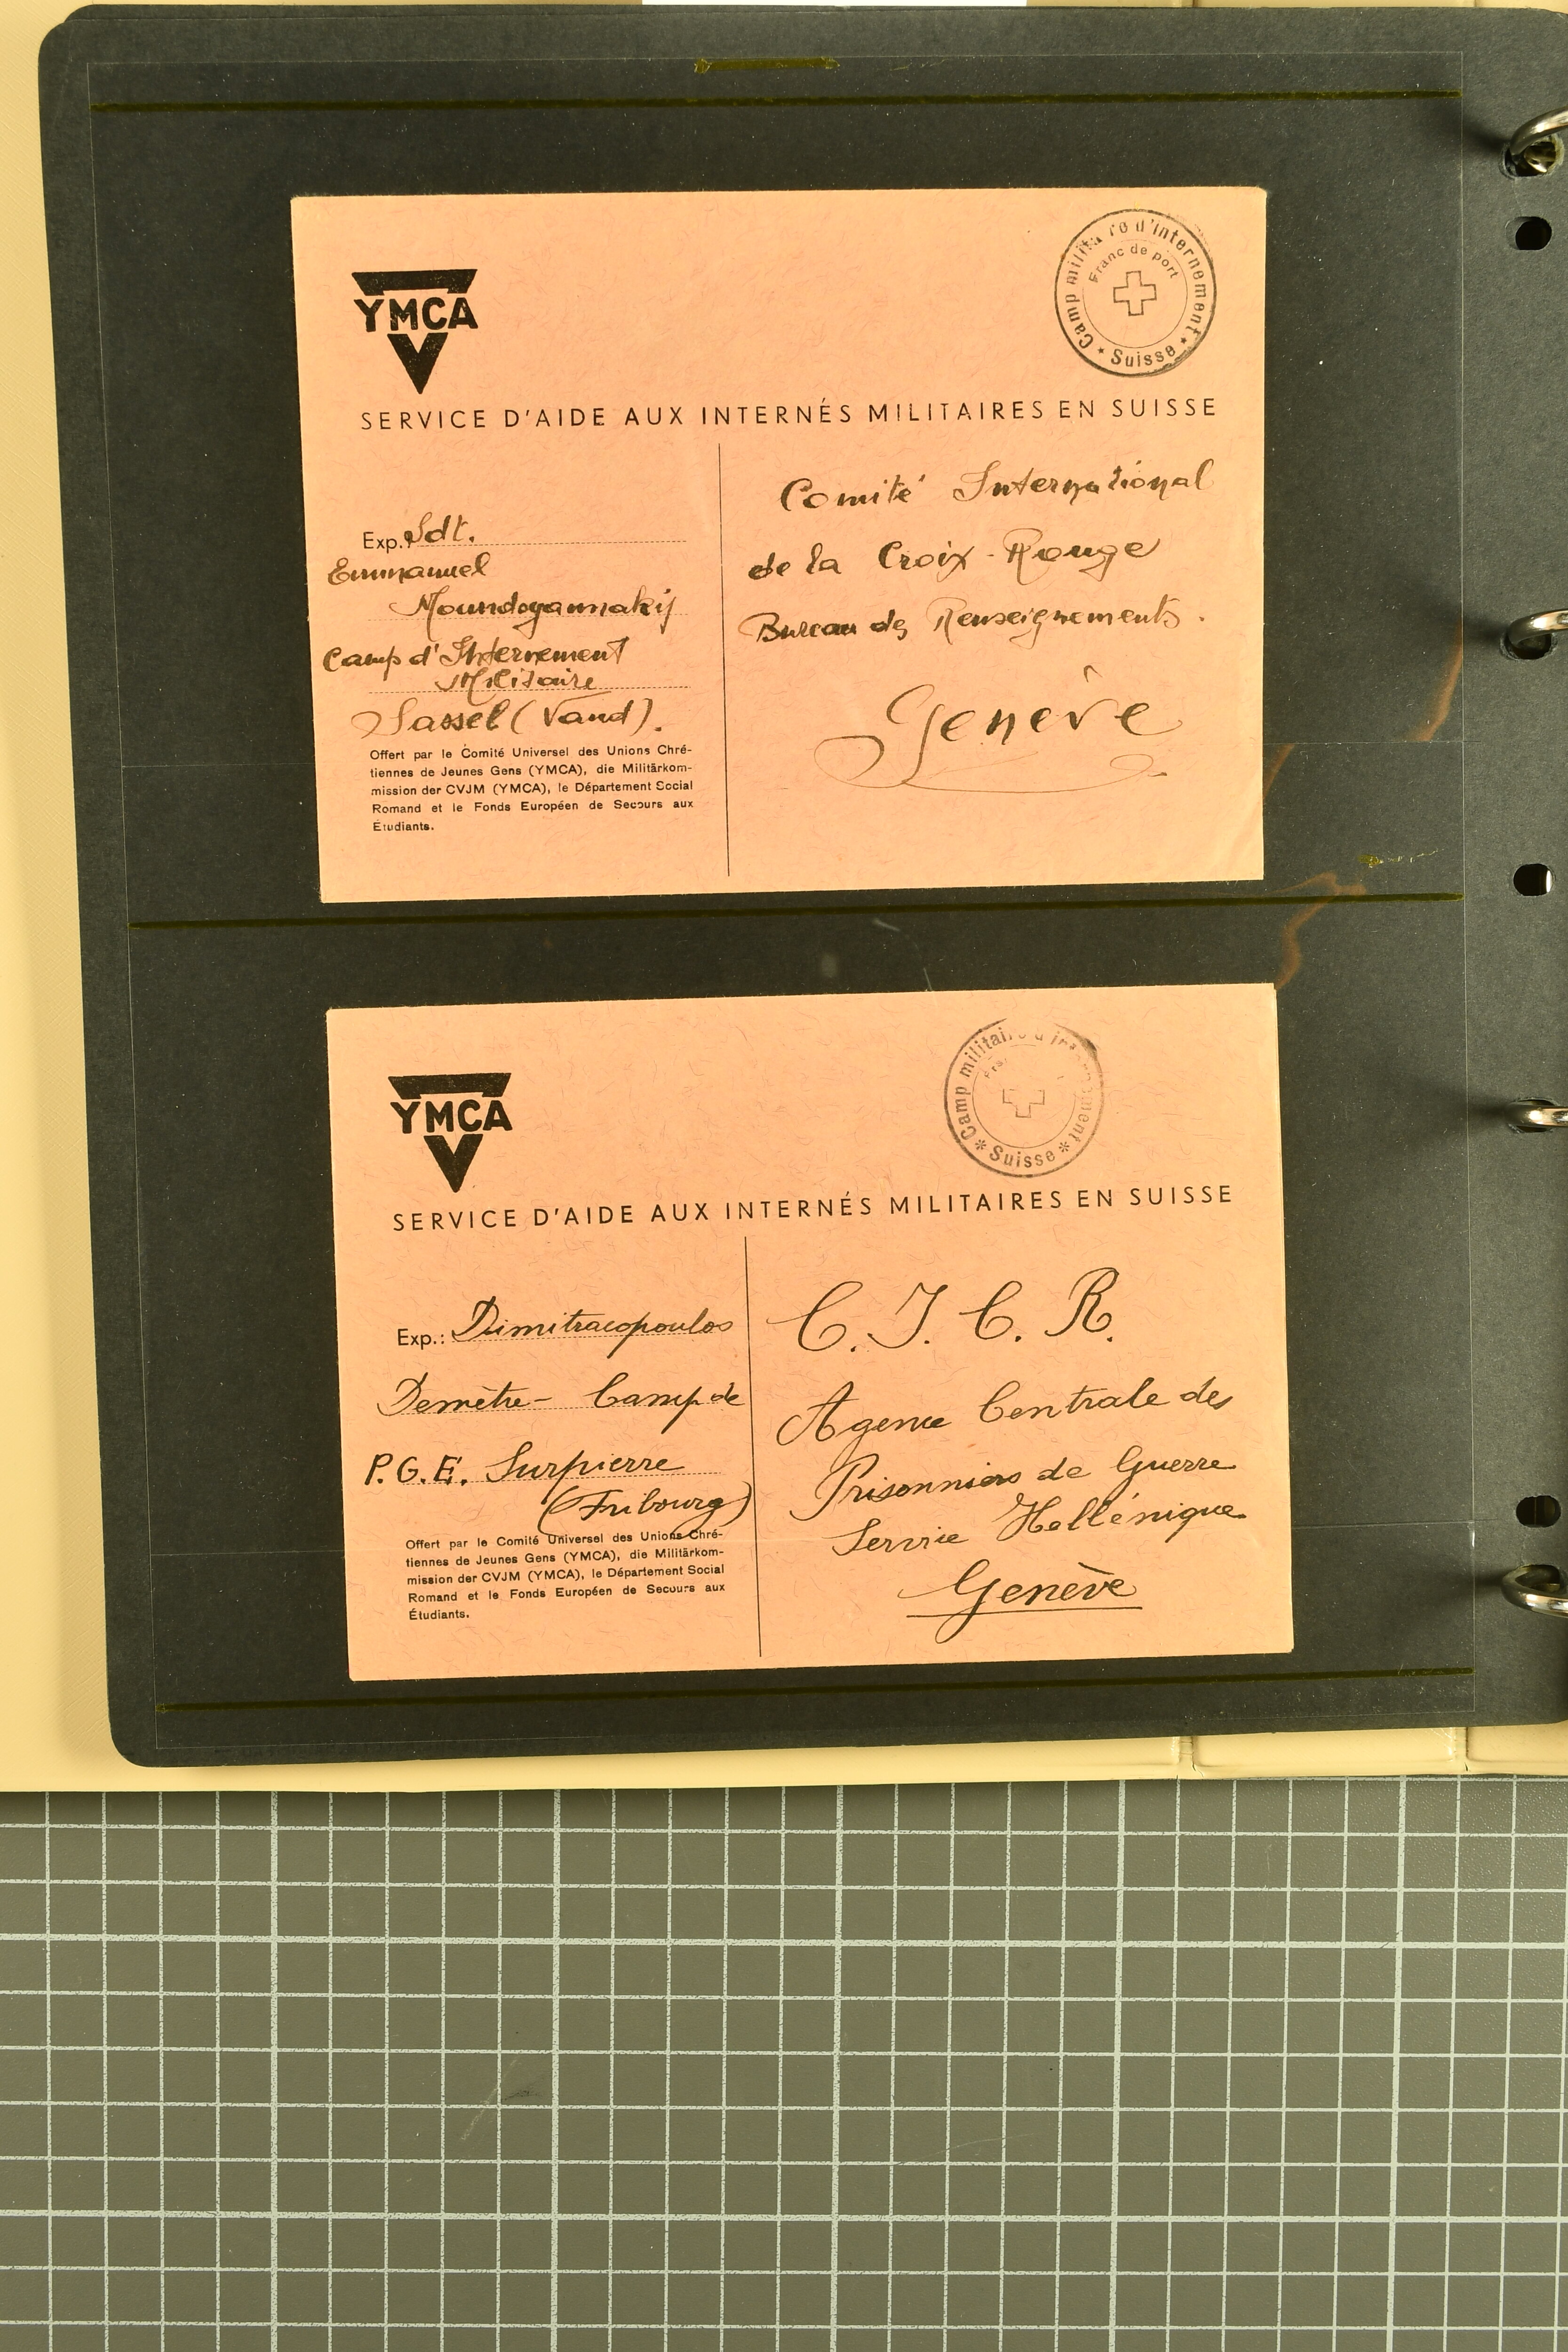 YMCA
Camp militaire d'internement
Franc de port
* Suisse *
SERVICE D'AIDE AUX INTERNÉS MILITAIRES EN SUISSE
Exp.: Sdt.
Emmanuel
Moundogannakis
Camp d'Internement
Militaire
Sassel (Vaud).
Offert par le Comité Universel des Unions Chré-
tiennes de Jeunes Gens (YMCA), die Militärkom-
mission der CVJM (YMCA), le Département Social
Romand et le Fonds Européen de Secours aux
Étudiants.
Comité International
de la Croix-Rouge
Bureau des Renseignements.
Genève
YMCA
Camp militaire d'internement
* Suisse *
SERVICE D'AIDE AUX INTERNÉS MILITAIRES EN SUISSE
Exp.: Dimitracopoulos
Demètre - Camp de
P.G.E. Surpierre
(Fribourg)
Offert par le Comité Universel des Unions Chré-
tiennes de Jeunes Gens (YMCA), die Militärkom-
mission der CVJM (YMCA), le Département Social
Romand et le Fonds Européen de Secours aux
Étudiants.
C. I. C. R.
Agence Centrale des
Prisonniers de Guerre
Servie Hellénique
Genève